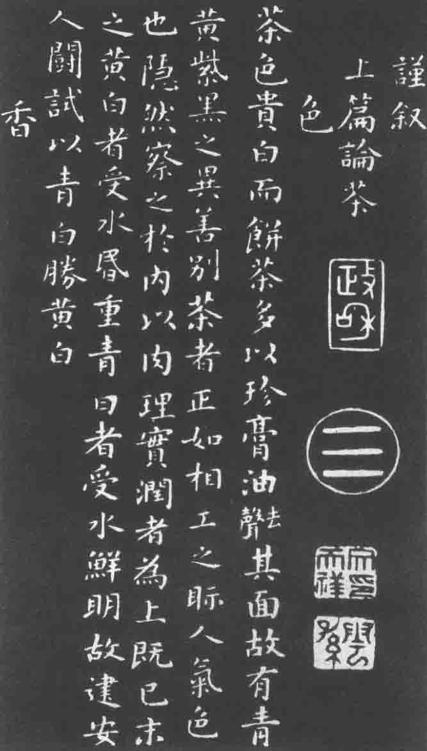 謹叙
上篇論茶
政和
色
茶色貴白而餅茶多以珍膏油去聲其面故有青
黄紫黑之異善别茶者正如相工之眎人氣色
也隠然察之於内以肉理實潤者為上既已末
之黄白者受水昬重青白者受水鮮明故建安
人闘試以青白勝黄白
香